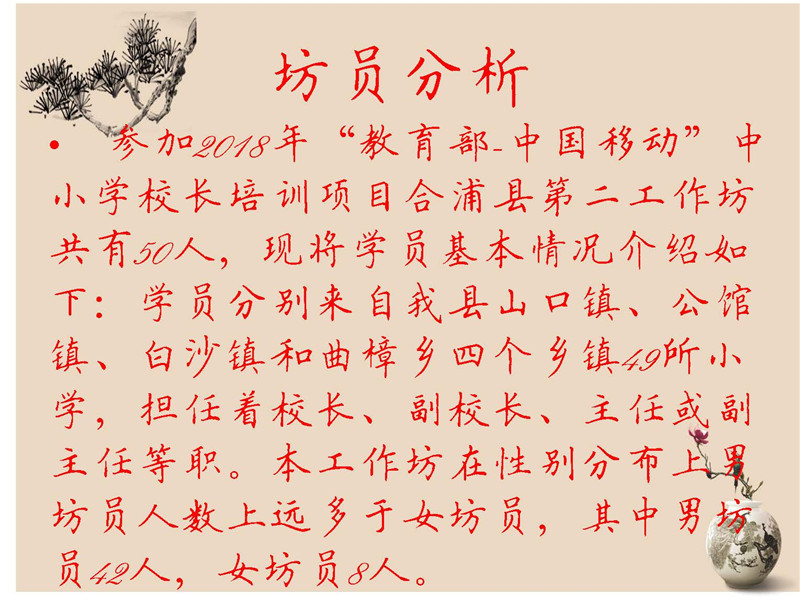 坊员分析
• 参加2018年“教育部-中国移动”中
小学校长培训项目合浦县第二工作坊
共有50人，现将学员基本情况介绍如
下：学员分别来自我县山口镇、公馆
镇、白沙镇和曲樟乡四个乡镇49所小
学，担任着校长、副校长、主任或副
主任等职。本工作坊在性别分布上男
坊员人数上远多于女坊员，其中男坊
员42人，女坊员8人。